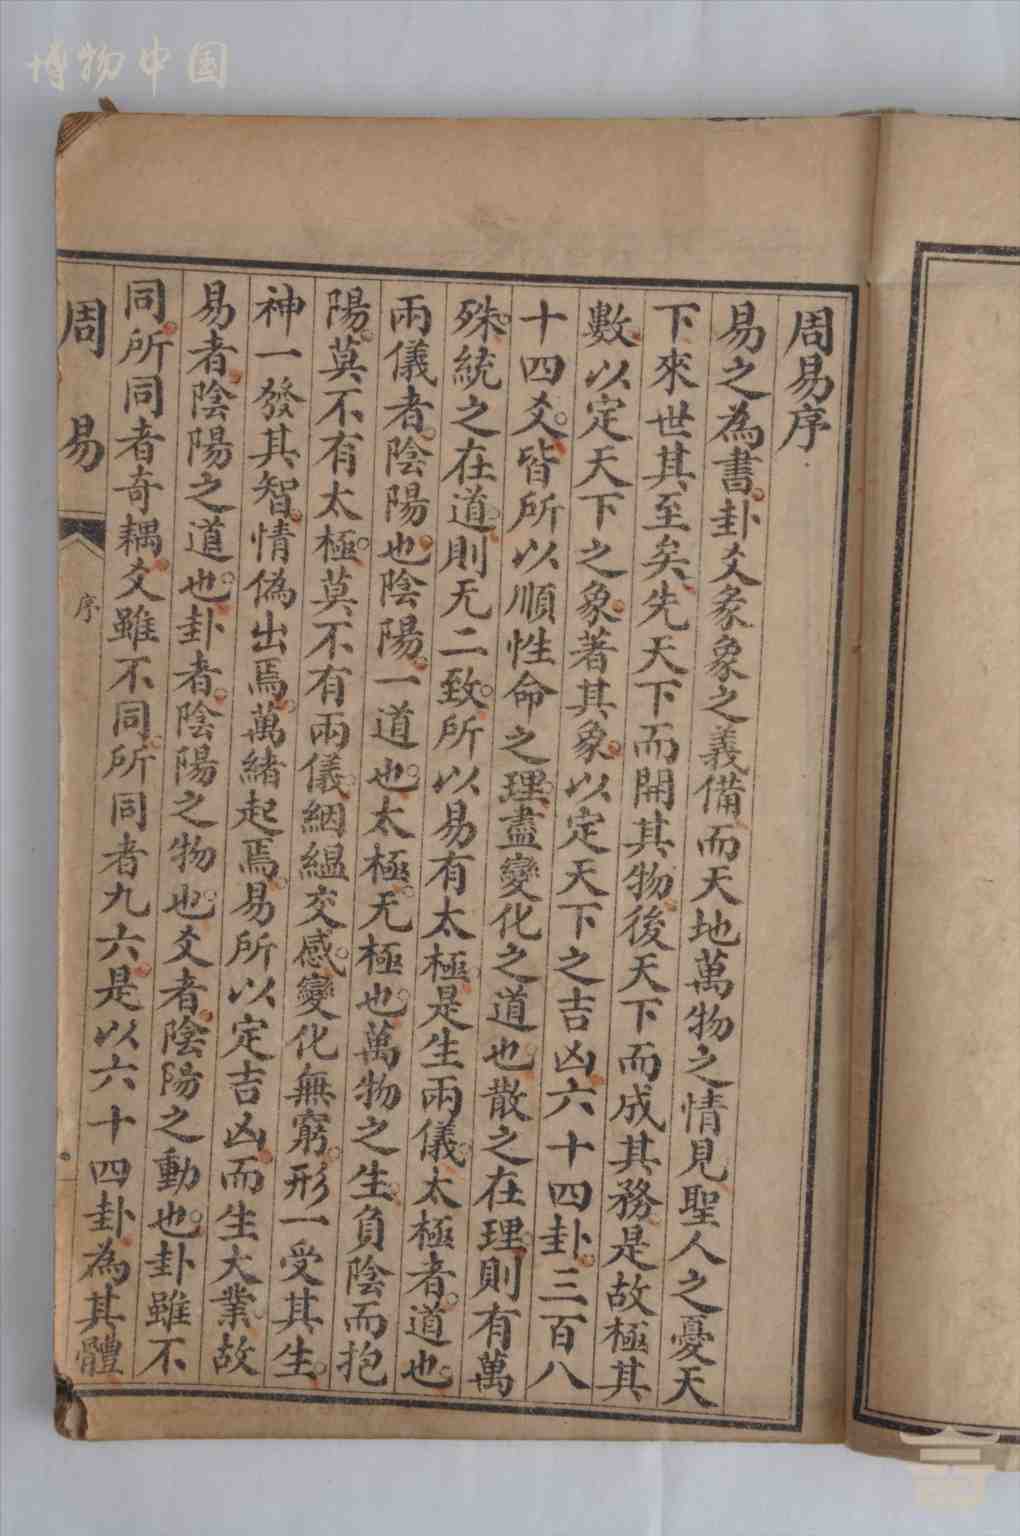 博物中国
周易序
易之為書卦爻彖象之義備而天地萬物之情見聖人之憂天
下來世其至矣先天下而開其物後天下而成其務是故極其
數以定天下之象著其象以定天下之吉凶六十四卦三百八
十四爻皆所以順性命之理盡變化之道也散之在理則有萬
殊統之在道則无二致所以易有太極是生兩儀太極者道也
兩儀者陰陽也陰陽一道也太極无極也萬物之生負陰而抱
陽莫不有太極莫不有兩儀絪縕交感變化無窮形一受其生
神一發其智情偽出焉萬緒起焉易所以定吉凶而生大業故
易者陰陽之道也卦者陰陽之物也爻者陰陽之動也卦雖不
同所同者奇耦爻雖不同所同者九六是以六十四卦為其體
周易 序